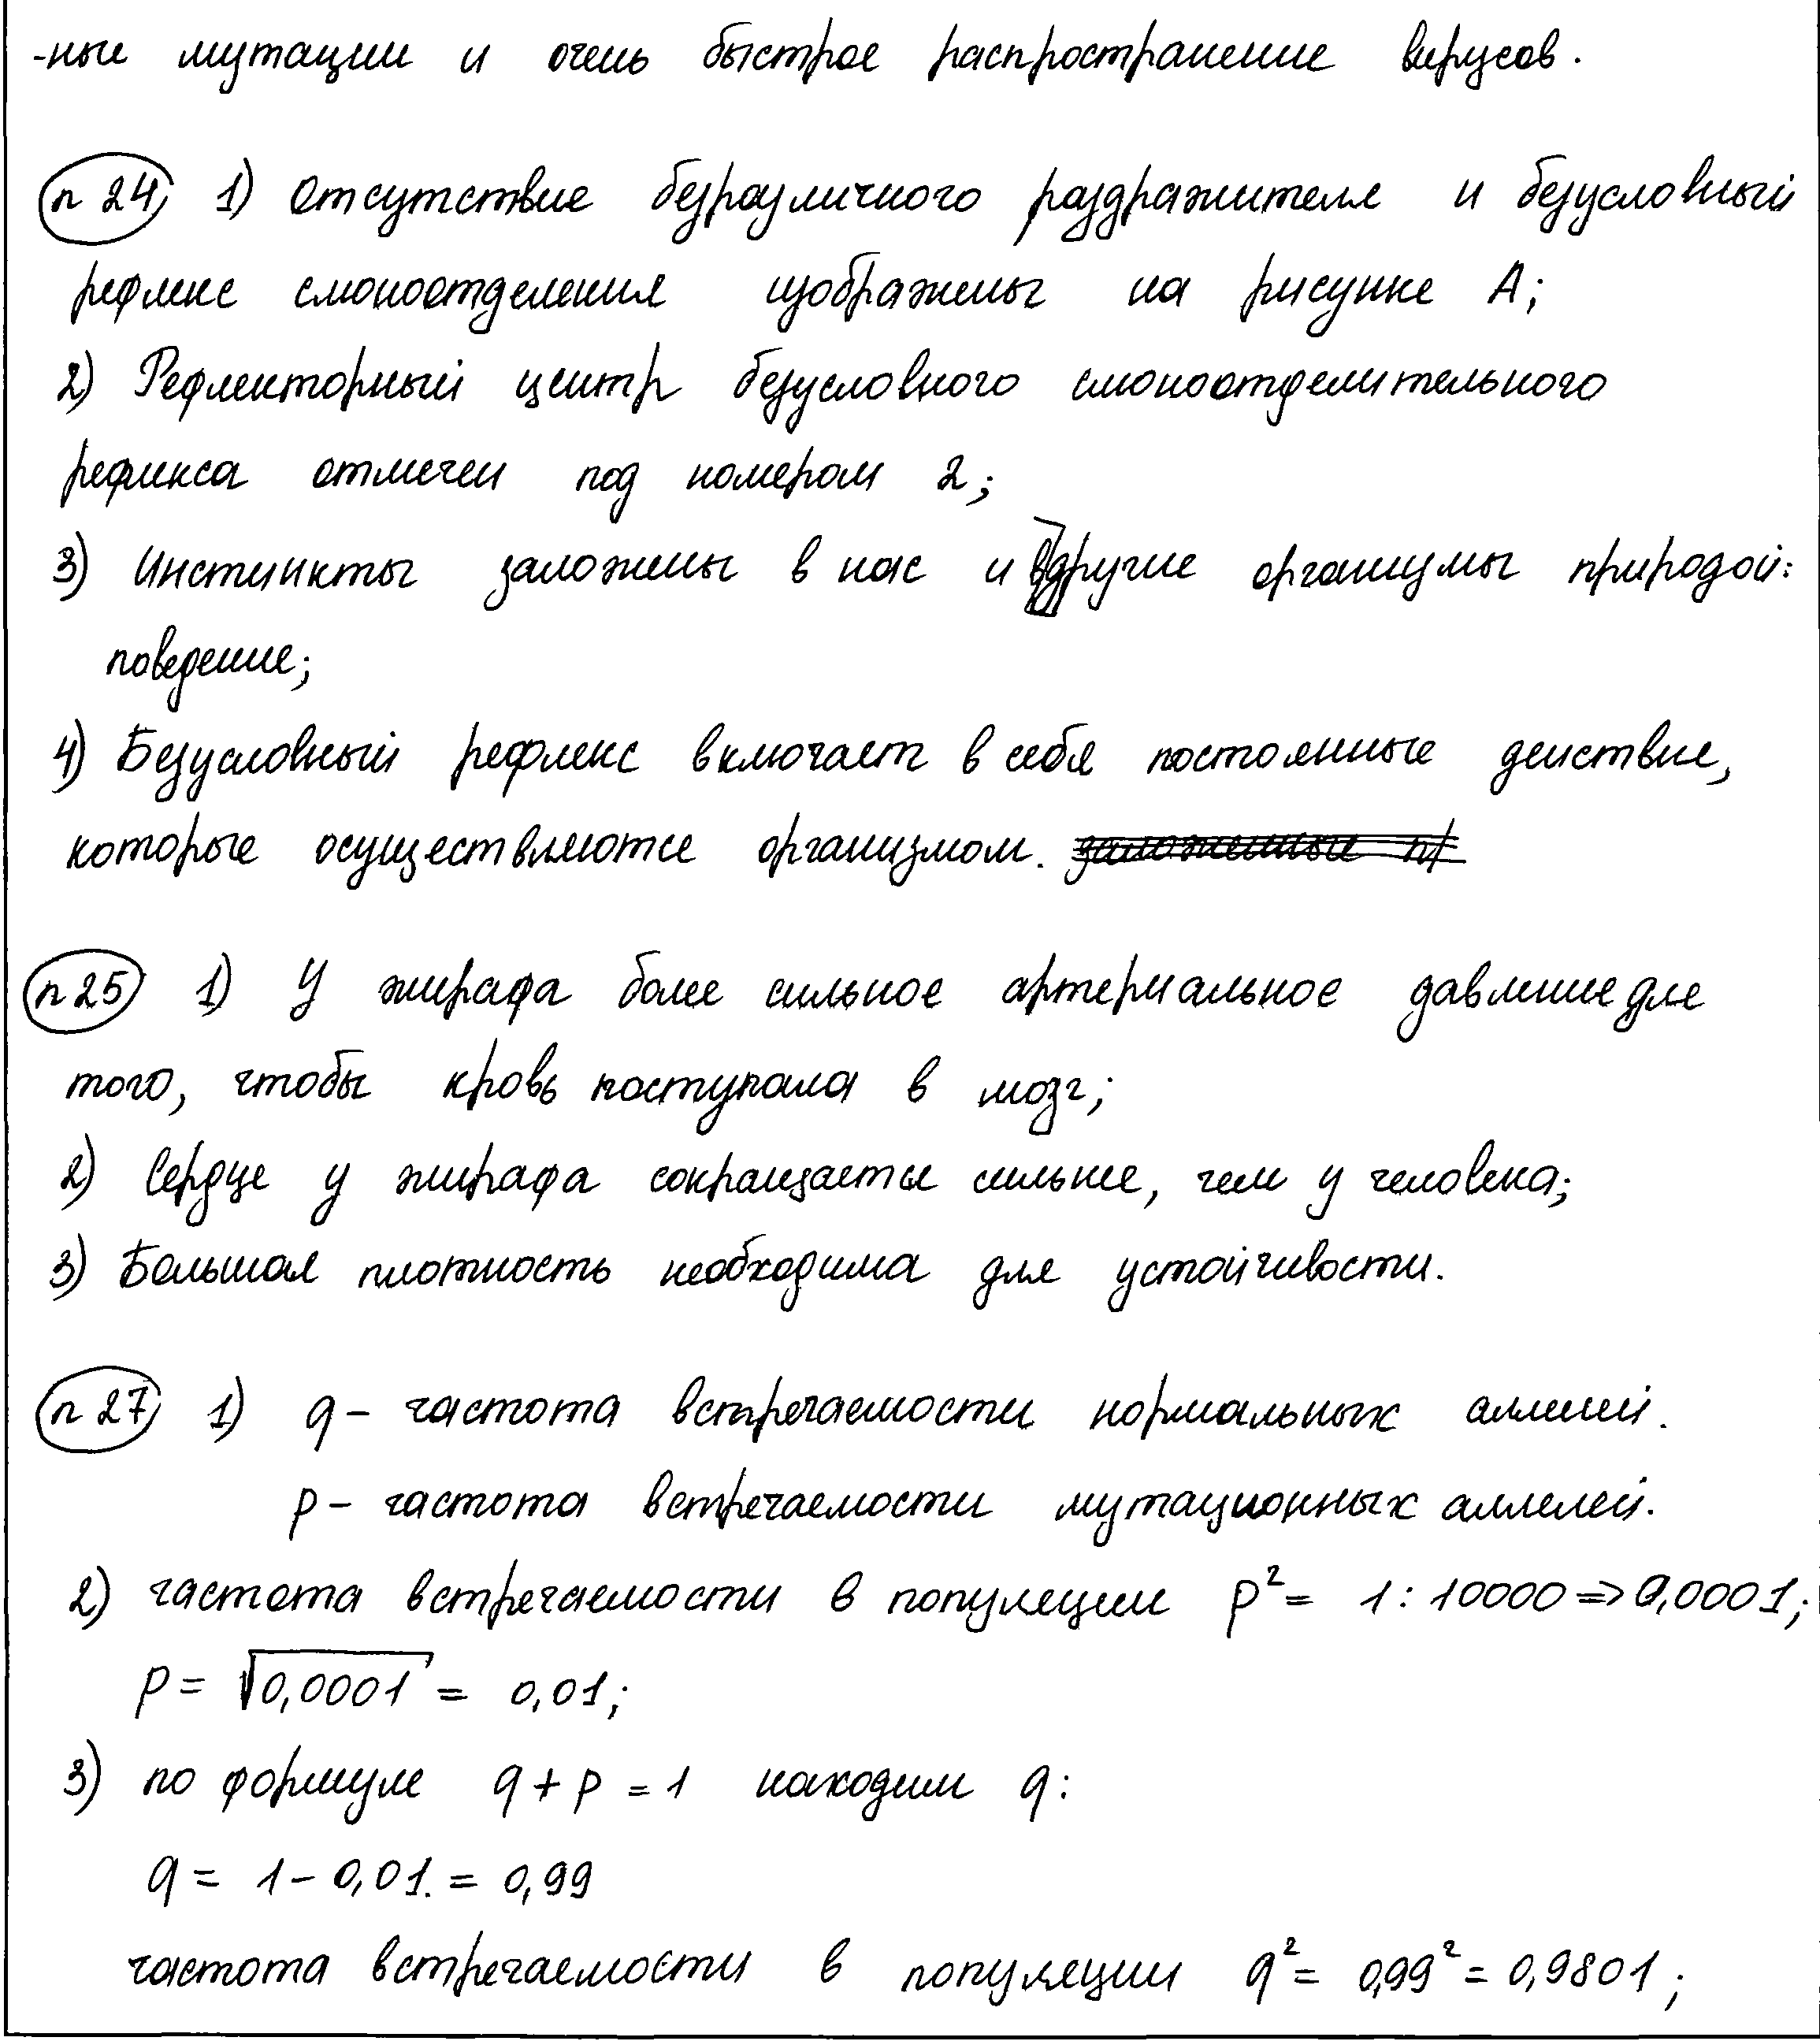 -ные мутации и очень быстрое распространение вирусов.
п 24 1) Отсутствие безразличного раздражителя и безусловный
рефлекс слюноотделения изображены на рисунке А;
2) Рефлекторный центр безусловного слюноотделительного
рефлекса отмечен под номером 2;
3) Инстинкты заложены в нас и другие организмы природой:
поведение;
4) Безусловный рефлекс включает в себя постоянные действие,
которые осуществляются организмом.
п 25 1) У жирафа более сильное артериальное давление для
того, чтобы кровь поступала в мозг;
2) Сердце у жирафа сокращается сильнее, чем у человека;
3) Большая плотность необходима для устойчивости.
п 27 1) q - частота встречаемости нормальных аллелей.
p - частота встречаемости мутационных аллелей.
2) частота встречаемости в популяции p² = 1 : 10000 => 0,0001;
p = √0,0001 = 0,01;
3) по формуле q + p = 1 находим q:
q = 1 - 0,01. = 0,99
частота встречаемости в популяции q² = 0,99² = 0,9801;